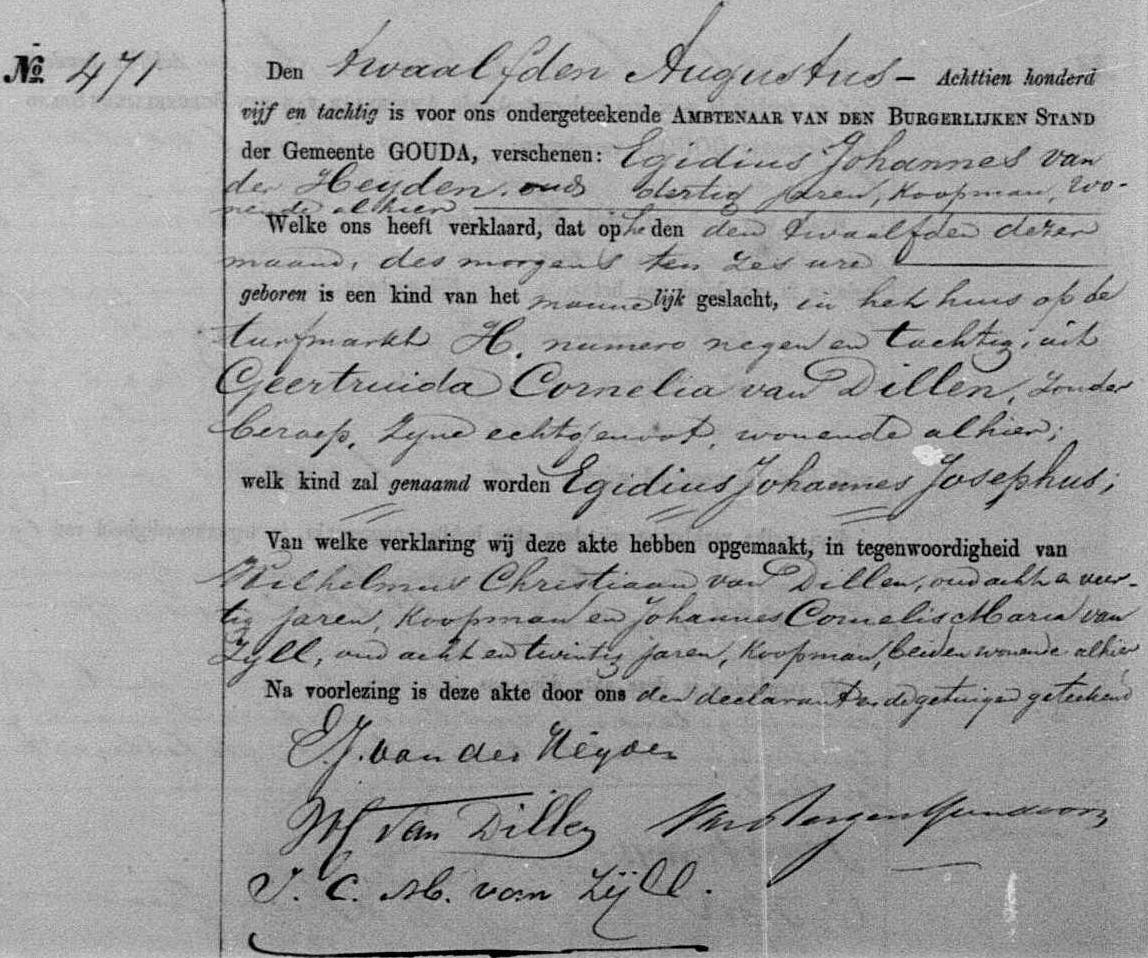 No 471
Den twaalfden Augustus – Achttien honderd
vijf en tachtig is voor ons ondergeteekende AMBTENAAR VAN DEN BURGERLIJKEN STAND
der Gemeente GOUDA, verschenen: Egidius Johannes van
der Heyden, oud dertig jaren, koopman, wo-
nende alhier
Welke ons heeft verklaard, dat op heden den twaalfden dezer
maand, des morgens ten zes ure
geboren is een kind van het mannelijk geslacht, in het huis op de
turfmarkt H. numero negen en tachtig, uit
Geertruida Cornelia van Dillen, zonder
beroep, zyne echtgenoot, wonende alhier;
welk kind zal genaamd worden Egidius Johannes Josephus;
Van welke verklaring wij deze akte hebben opgemaakt, in tegenwoordigheid van
Wilhelmus Christiaan van Dillen, oud acht en veer-
tig jaren, koopman en Johannes Cornelis Maria van
Zyll, oud acht en twintig jaren, koopman, beiden wonende alhier
Na voorlezing is deze akte door ons den declarant en de getuigen geteekend
E.J. van der Heyden
W van Dillen
J. C. M. van Zÿll.